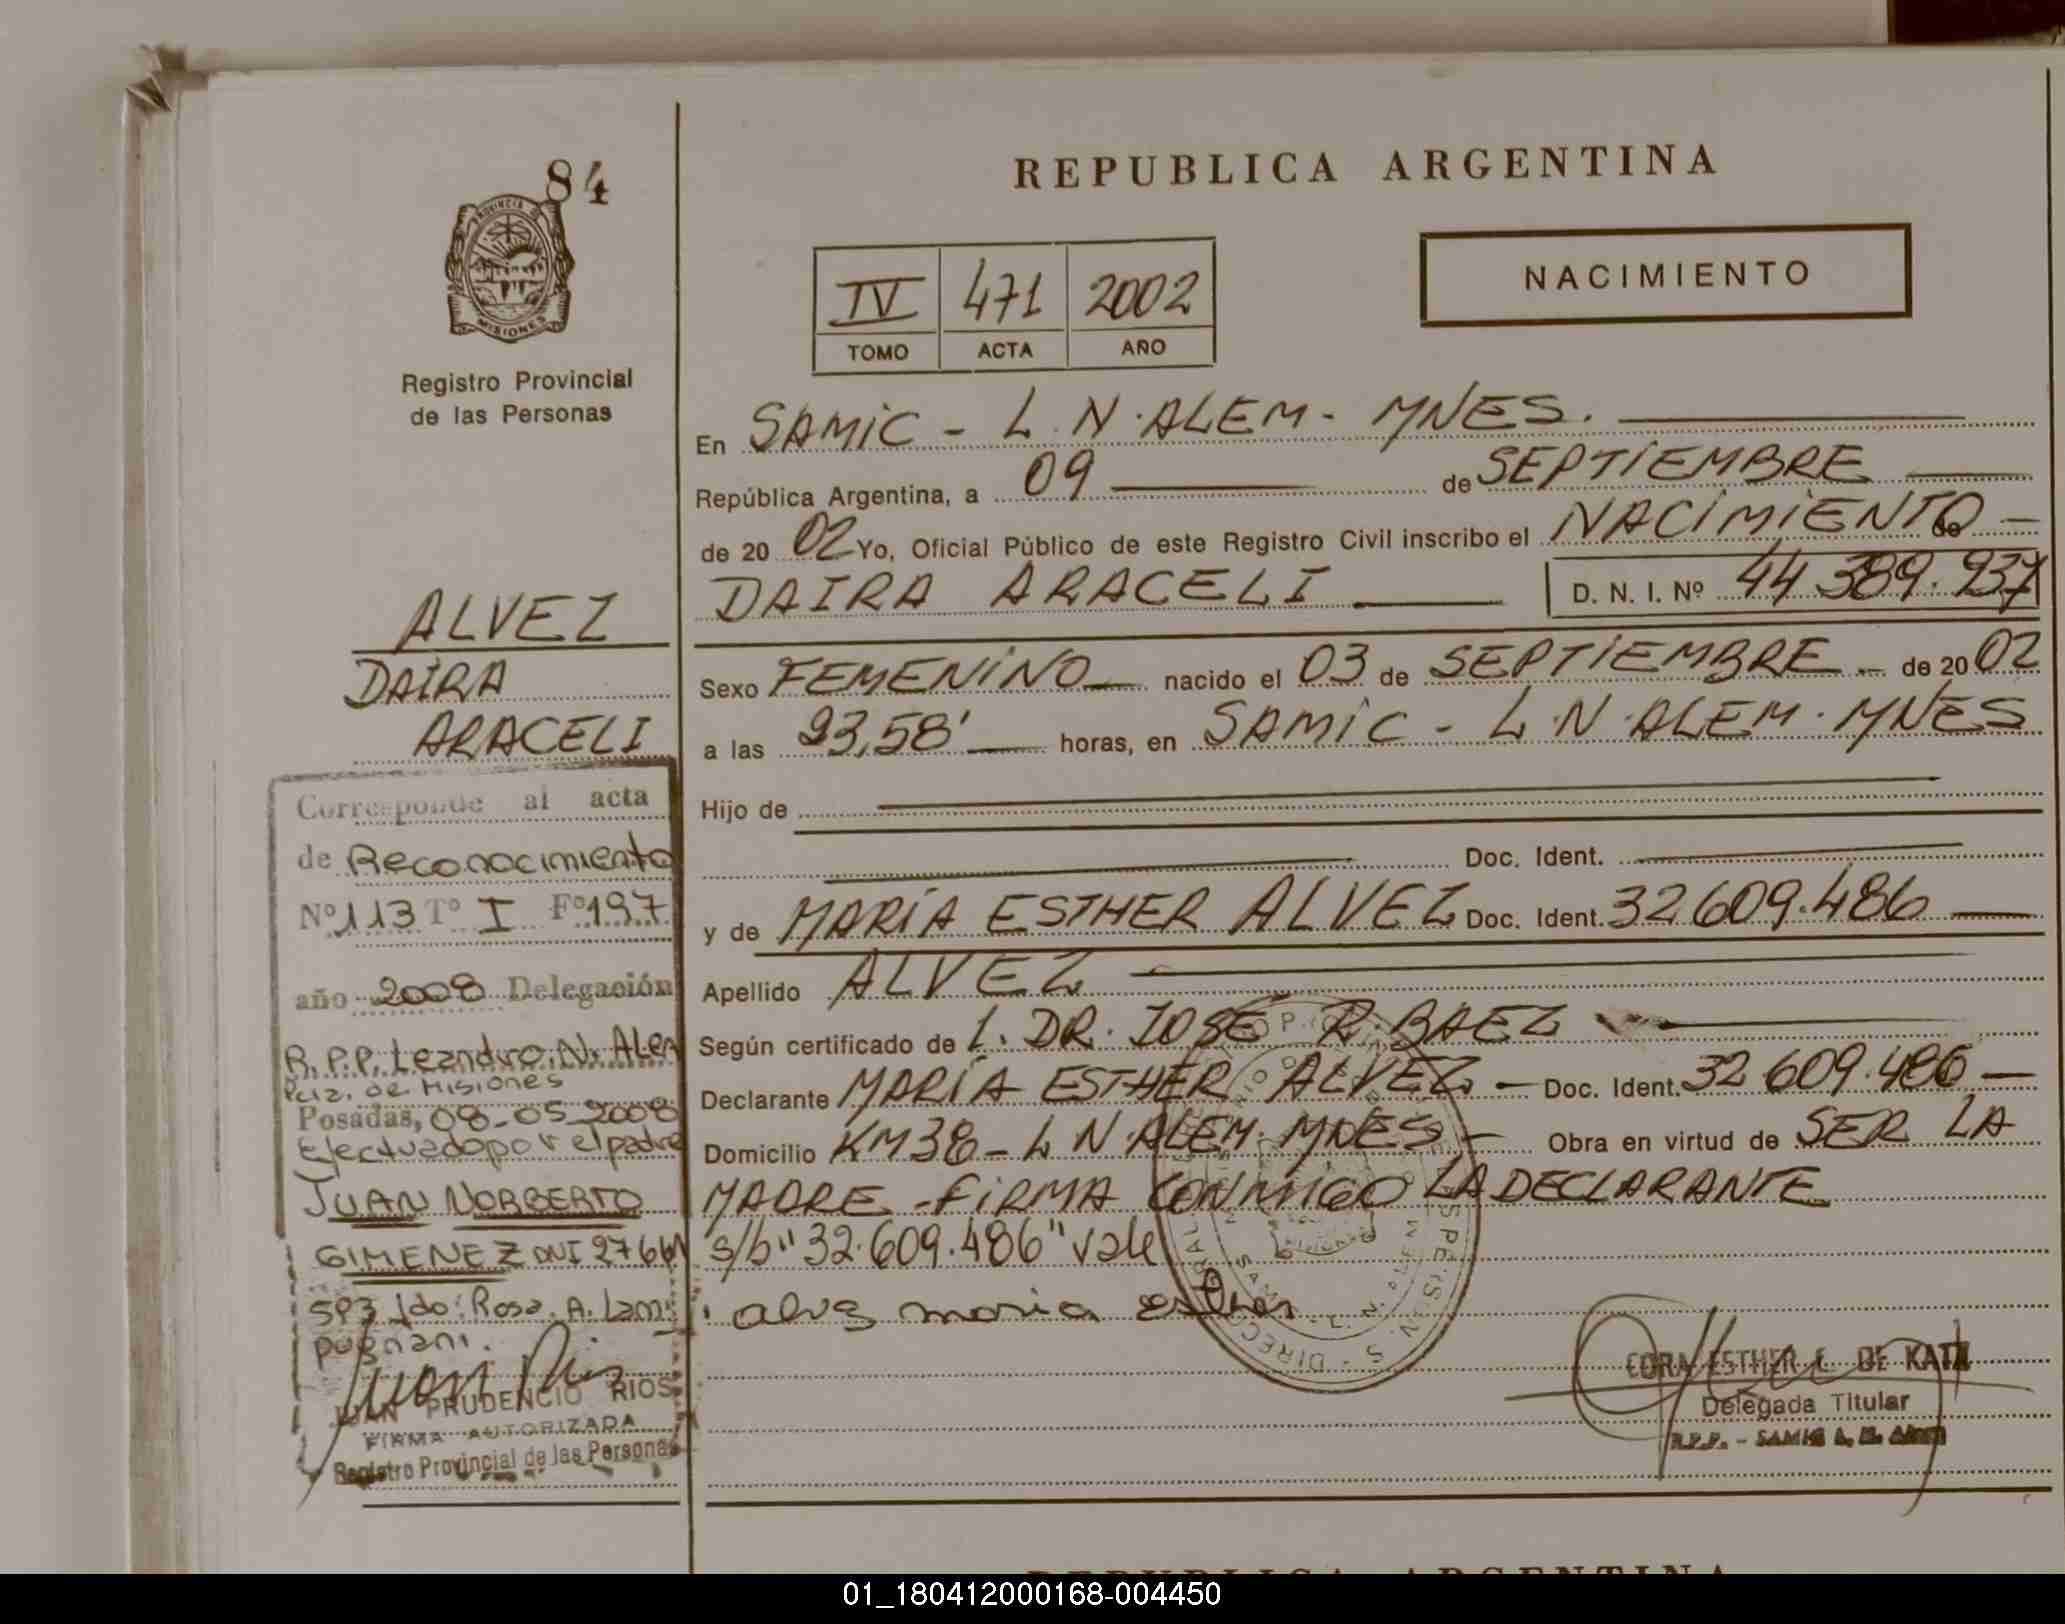 84
PROVINCIA DE
MISIONES
Registro Provincial
de las Personas
ALVEZ
DAIRA
ARACELI
Corresponde al acta
de Reconocimiento
Nº 113 Tº I Fº 197
año 2008 Delegación
R.P.P. Leandro. N. Alem
Pcia. de Misiones
Posadas, 08-05-2008
Efectuado por el padre
JUAN NORBERTO
GIMENEZ DNI 27661
593 fdo: Rosa. A. Lam
pugnani.
JUAN PRUDENCIO RIOS
FIRMA AUTORIZADA
Registro Provincial de las Personas
REPUBLICA ARGENTINA
NACIMIENTO
IV 471 2002
TOMO ACTA AÑO
En SAMIC - L.N. ALEM - MNES.
República Argentina, a 09 de SEPTIEMBRE
de 20 02 Yo, Oficial Público de este Registro Civil inscribo el NACIMIENTO de
DAIRA ARACELI D. N. I. Nº 44 389.937
Sexo FEMENINO nacido el 03 de SEPTIEMBRE de 20 02
a las 23,58' horas, en SAMIC - L.N. ALEM. MNES
Hijo de
Doc. Ident.
y de MARÍA ESTHER ALVEZ Doc. Ident. 32 609.486
Apellido ALVEZ
Según certificado de 1. DR. JOSÉ R. BAEZ
Declarante MARÍA ESTHER ALVEZ - Doc. Ident. 32 609.486
Domicilio KM38 - L N. ALEM. MNES - Obra en virtud de SER LA
MADRE - FIRMA CONMIGO LA DECLARANTE
s/b "32.609.486" vale
alvez maria esther
CORA ESTHER DE KATZ
Delegada Titular
R.P.P. - SAMIC L. N. Alem
REPUBLICA ARGENTINA
01_180412000168-004450